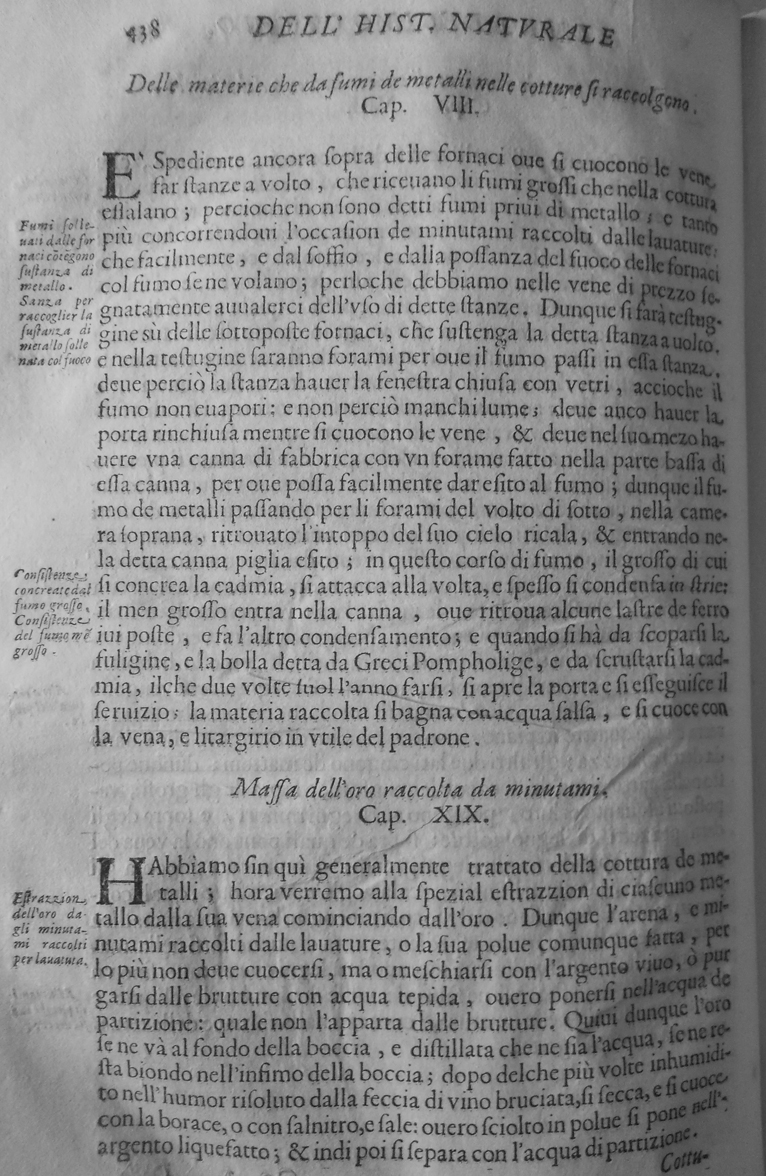 438
DELL' HIST. NATVRALE
Delle materie che da fumi de metalli nelle cotture si raccolgono.
Cap. VIII.
E' Spediente ancora sopra delle fornaci oue si cuocono le vene,
far stanze a volto, che riceuano li fumi grossi che nella cottura
essalano; percioche non sono detti fumi priui di metallo; e tanto
più concorrendoui l'occasion de minutami raccolti dalle lauature;
che facilmente, e dal soffio, e dalla possanza del fuoco delle fornaci
col fumo se ne volano; perloche debbiamo nelle vene di prezzo se-
gnatamente auualerci dell'vso di dette stanze. Dunque si farà testug-
gine sù delle sottoposte fornaci, che sustenga la detta stanza a uolto.
e nella testugine saranno forami per oue il fumo passi in essa stanza,
deue perciò la stanza hauer la fenestra chiusa con vetri, accioche il
fumo non euapori: e non perciò manchi lume; deue anco hauer la
porta rinchiusa mentre si cuocono le vene, & deue nel suo mezo ha-
uere vna canna di fabbrica con vn forame fatto nella parte bassa di
essa canna, per oue possa facilmente dar esito al fumo; dunque il fu-
mo de metalli passando per li forami del volto di sotto, nella came-
ra soprana, ritrouato l'intoppo del suo cielo ricala, & entrando ne-
la detta canna piglia esito; in questo corso di fumo, il grosso di cui
si concrea la cadmia, si attacca alla volta, e spesso si condensa in strie:
il men grosso entra nella canna, oue ritroua alcune lastre de ferro
iui poste, e fa l'altro condensamento; e quando si hà da scoparsi la
fuligine, e la bolla detta da Greci Pompholige, e da scrustarsi la cad-
mia, ilche due volte suol l'anno farsi, si apre la porta e si esseguisce il
seruizio; la materia raccolta si bagna con acqua salsa, e si cuoce con
la vena, e litargirio in vtile del padrone.
Fumi solle-
uati dalle for
naci cōtēgono
sustanza di
metallo.
Sanza per
raccoglier la
sustanza di
metallo solle
nata col fuoco
Consistenze
concreate dal
fumo grosso.
Consistenze
del fumo mē
grosso.
Massa dell'oro raccolta da minutami.
Cap. XIX.
HAbbiamo sin quì generalmente trattato della cottura de me-
talli; hora verremo alla spezial estrazzion di ciascuno me-
tallo dalla sua vena cominciando dall'oro. Dunque l'arena, e mi-
nutami raccolti dalle lauature, o la sua polue comunque fatta, per
lo più non deue cuocersi, ma o meschiarsi con l'argento viuo, ò pur
garsi dalle brutture con acqua tepida, ouero ponersi nell'acqua de
partizione: quale non l'apparta dalle brutture. Quiui dunque l'oro
se ne và al fondo della boccia, e distillata che ne sia l'acqua, se ne re-
sta biondo nell'infimo della boccia; dopo delche più volte inhumidi-
to nell'humor risoluto dalla feccia di vino bruciata, si secca, e si cuoce
con la borace, o con salnitro, e sale: ouero sciolto in polue si pone nell'-
argento liquefatto; & indi poi si separa con l'acqua di partizione.
Cottu-
Estrazzion
dell'oro da
gli minuta-
mi raccolti
per lauatura.